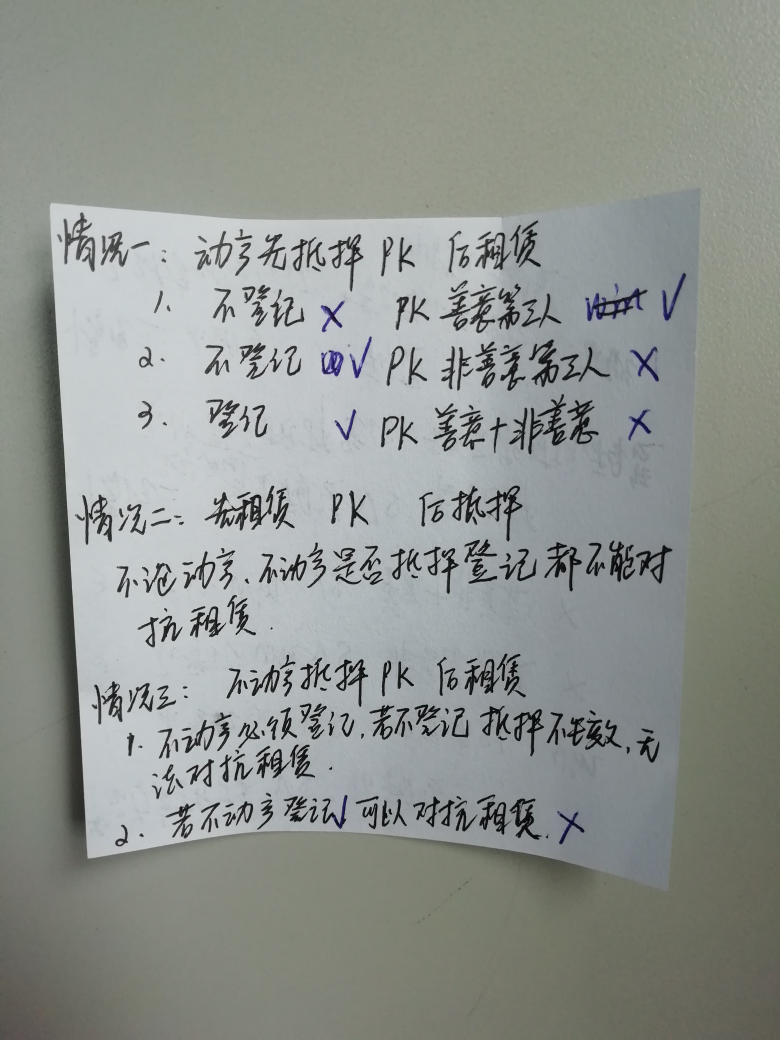 情况一：动产先抵押 PK 后租赁
1. 不登记 × PK 善意第三人 √
2. 不登记 √ PK 非善意第三人 ×
3. 登记 √ PK 善意+非善意 ×
情况二：先租赁 PK 后抵押
不论动产、不动产是否抵押登记都不能对
抗租赁.
情况三：不动产抵押 PK 后租赁
1. 不动产必须登记,若不登记抵押不生效,无
法对抗租赁.
2. 若不动产登记√可以对抗租赁.×